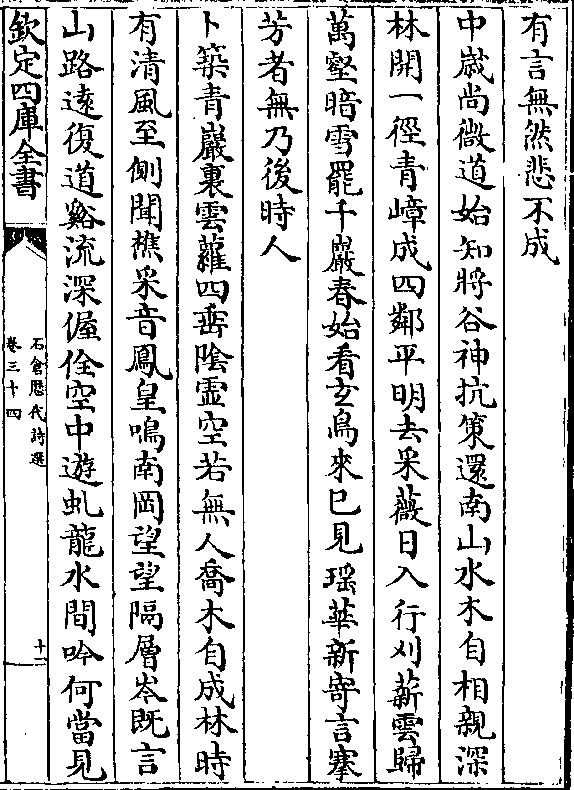 有言無然悲不成
中嵗尚微道始知將谷神抗策還南山水木自相親深
林開一徑青嶂成四鄰平明去采薇日入行刈薪雲歸
萬壑暗雪罷千巖春始看玄鳥來已見瑶華新寄言搴
芳者無乃後時人
卜築青巖裏雲蘿四垂陰虚空若無人喬木自成林時
有清風至側聞樵采音鳳皇鳴南岡望望隔層岑既言
山路逺復道谿流深偓佺空中遊虬龍水間吟何當見
欽定四庫全書
石倉歴代詩選
卷三十四
十一